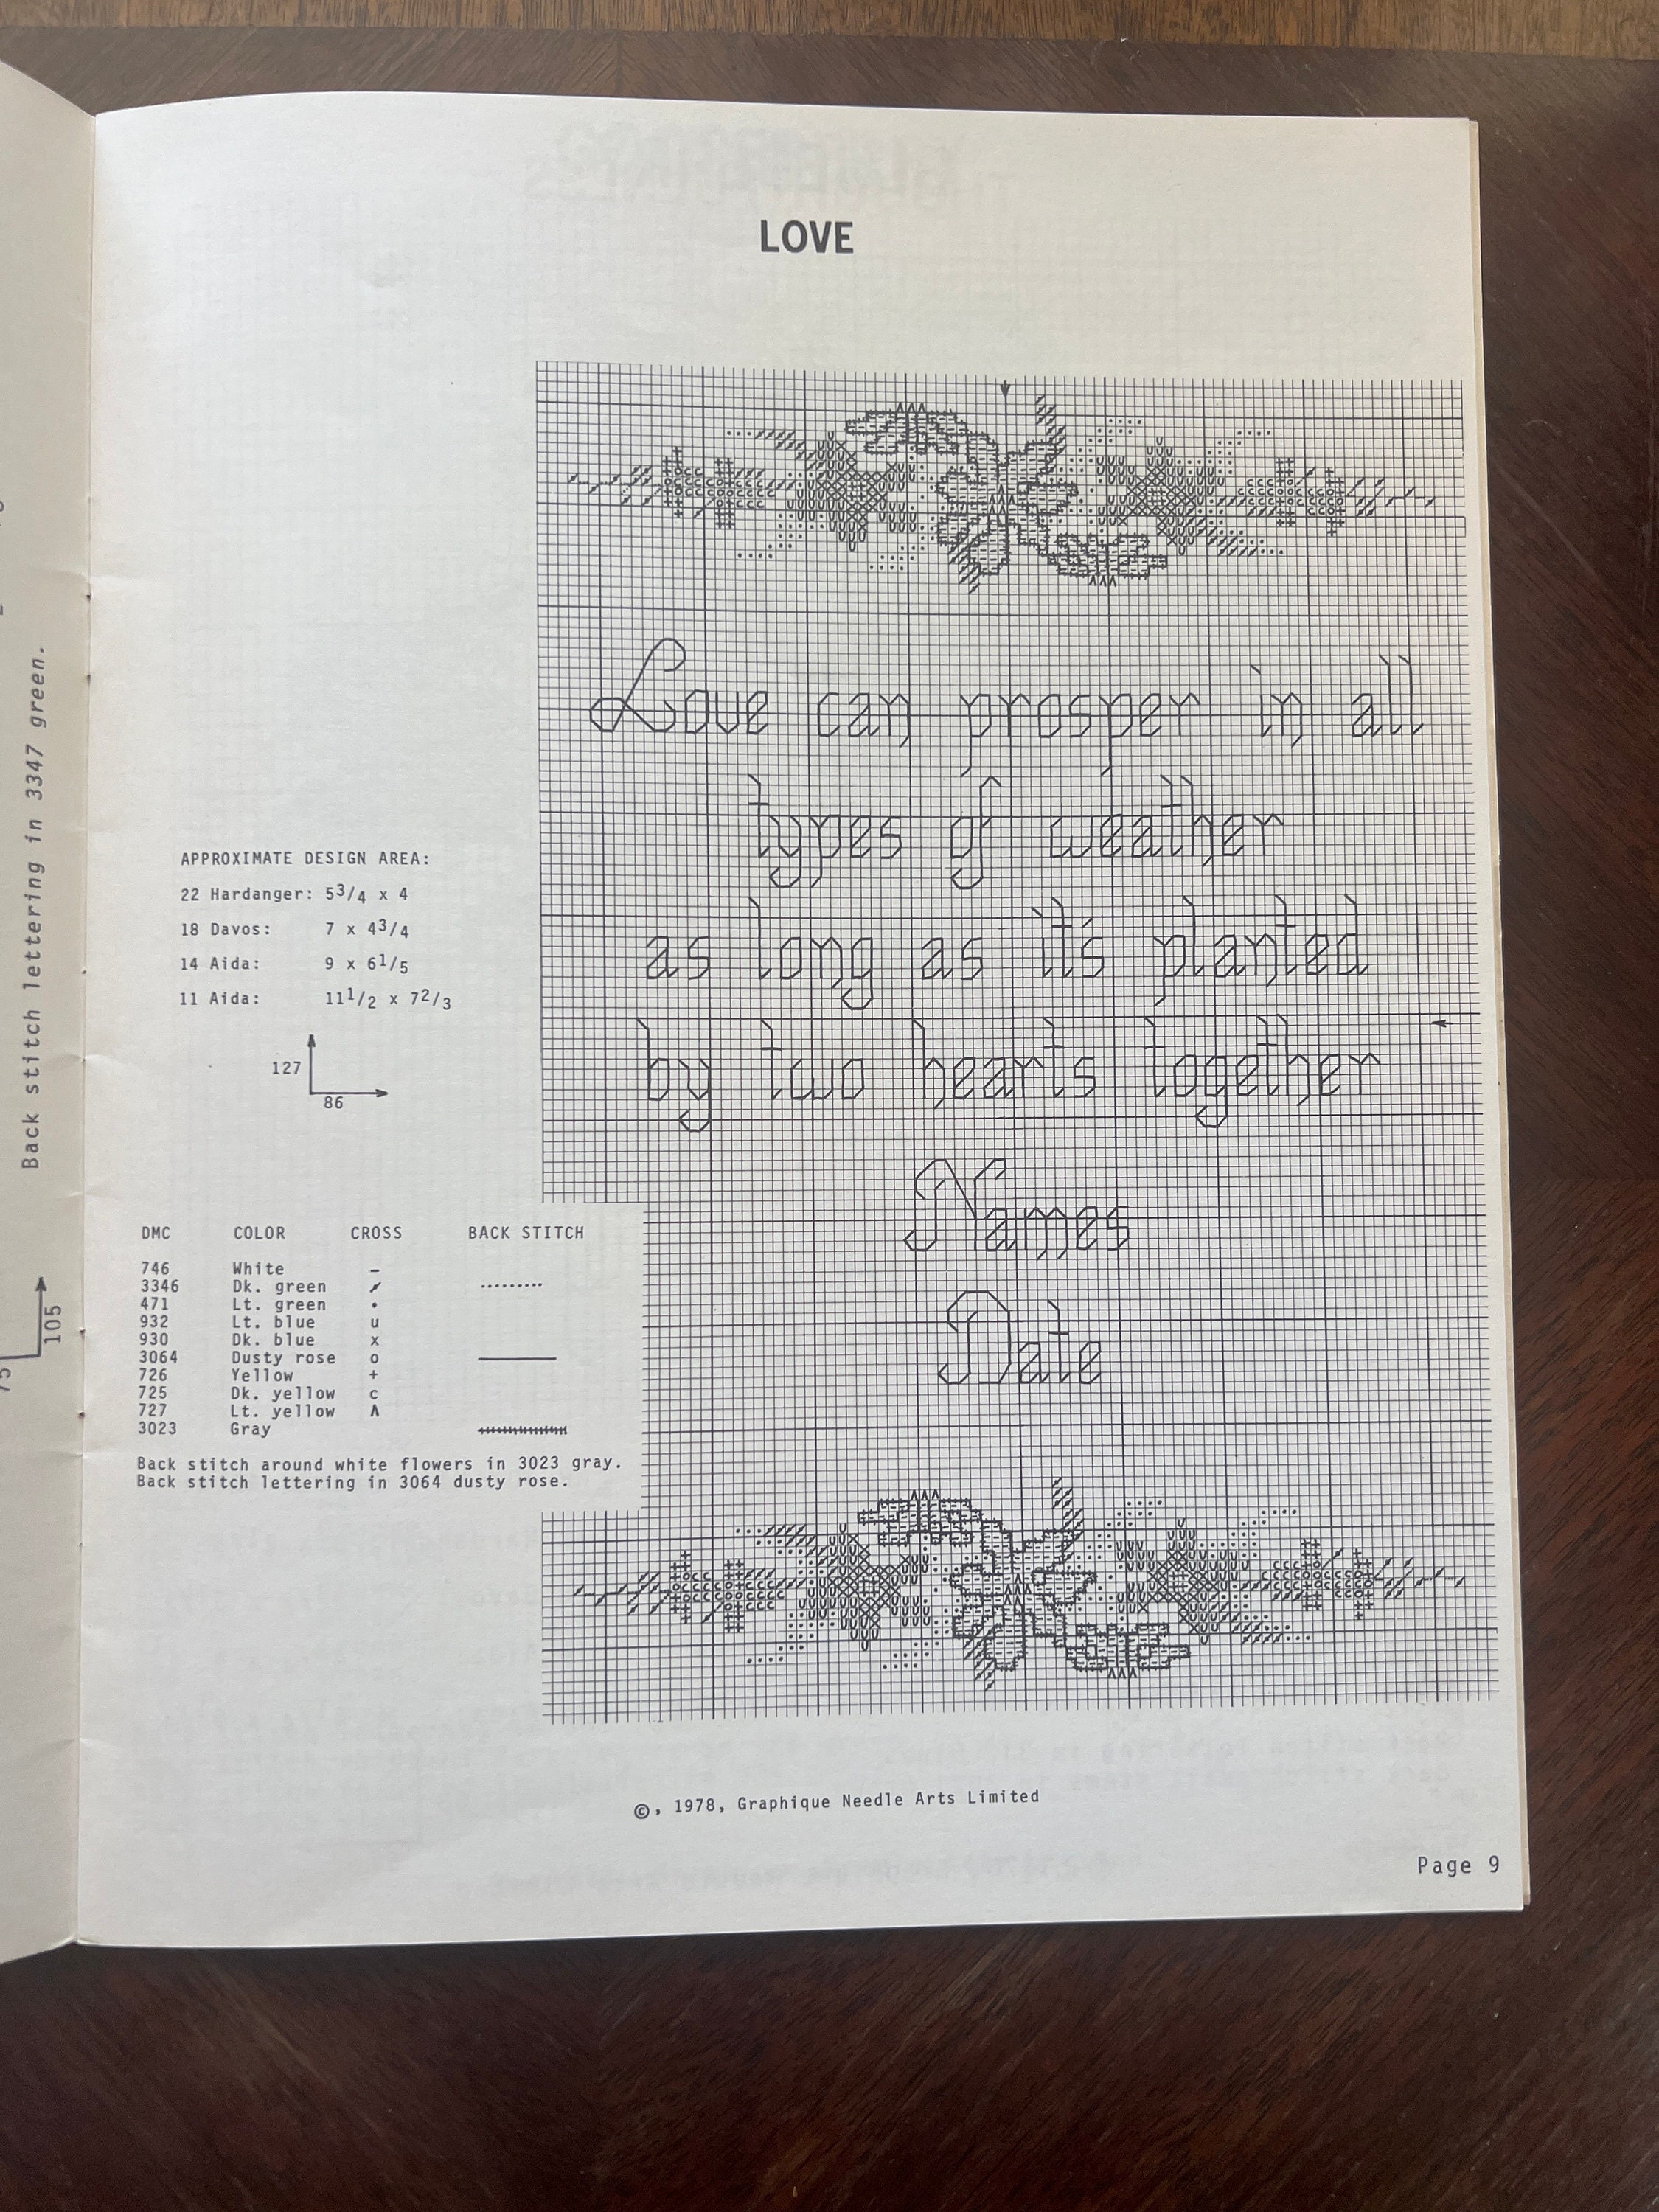 LOVE
Love can prosper in all
types of weather
as long as it's planted
by two hearts together
Names
Date
APPROXIMATE DESIGN AREA:
22 Hardanger: 5 3/4 x 4
18 Davos: 7 x 4 3/4
14 Aida: 9 x 6 1/5
11 Aida: 11 1/2 x 7 2/3
127
86
DMC COLOR CROSS BACK STITCH
746 White –
3346 Dk. green
471 Lt. green •
932 Lt. blue u
930 Dk. blue x
3064 Dusty rose o
726 Yellow +
725 Dk. yellow c
727 Lt. yellow ʌ
3023 Gray
Back stitch around white flowers in 3023 gray.
Back stitch lettering in 3064 dusty rose.
©, 1978, Graphique Needle Arts Limited
Page 9
Back stitch lettering in 3347 green.
105